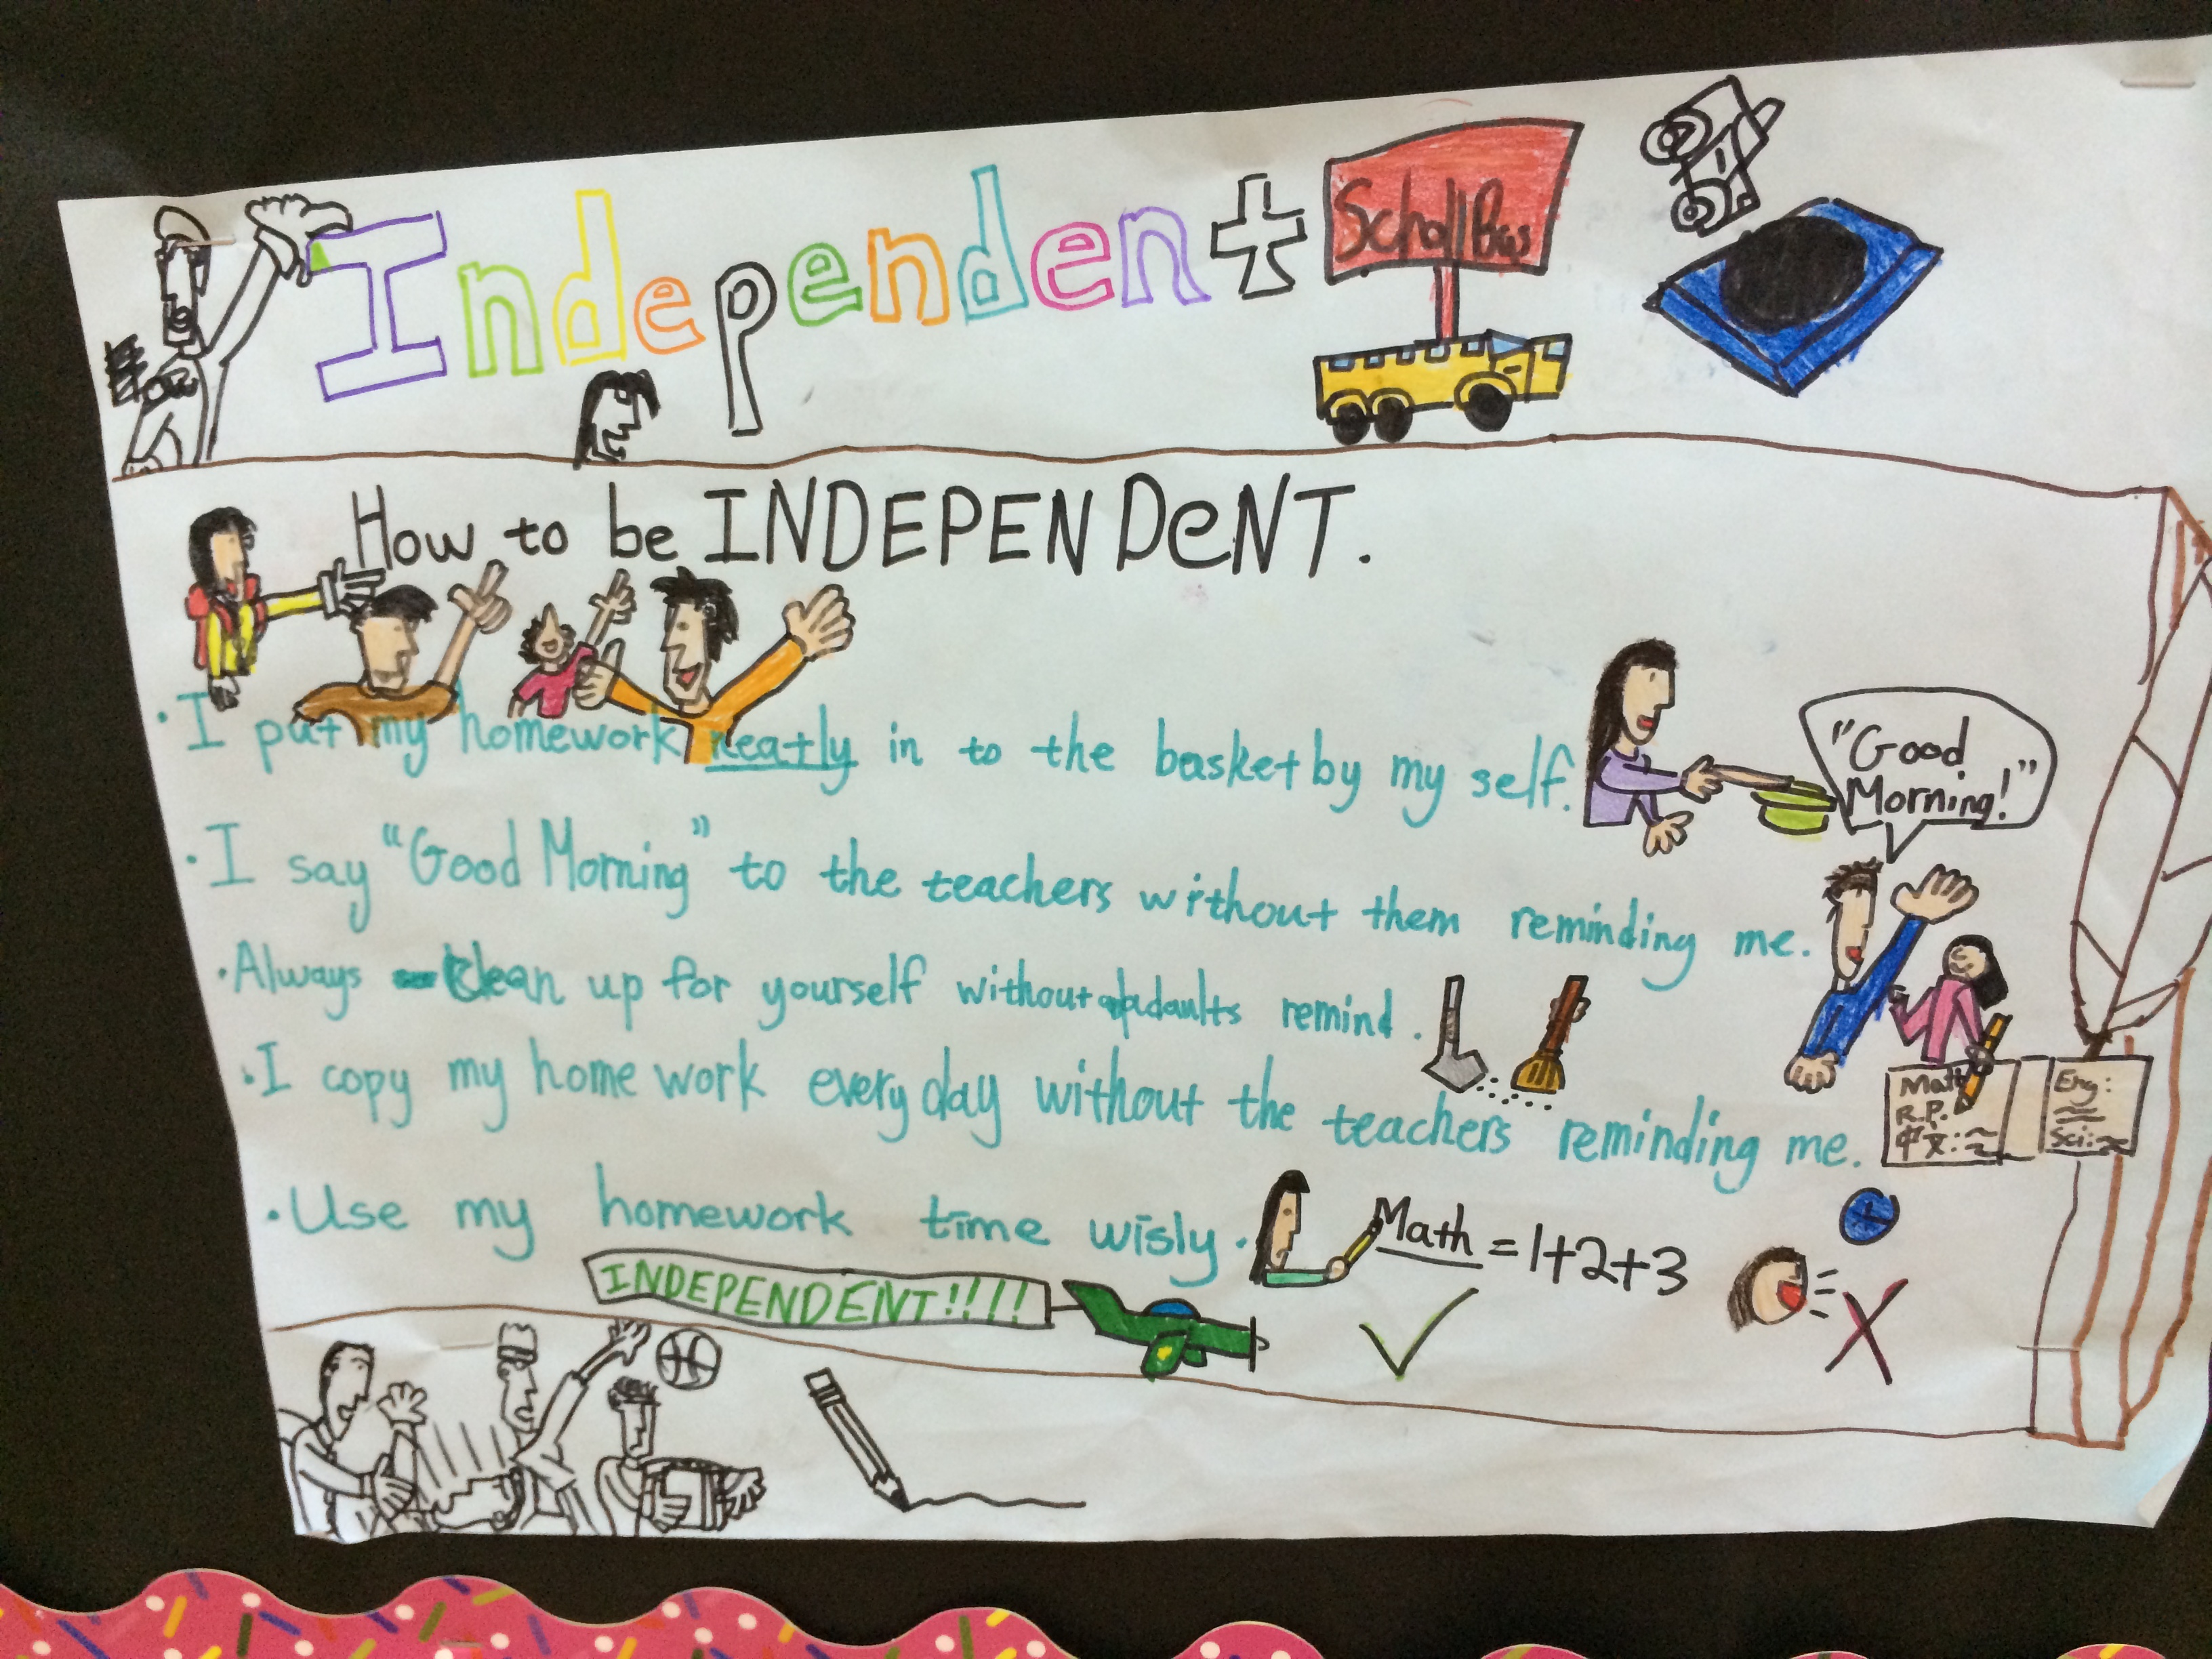 Independent
Scholl Bus
How to be INDEPENDeNT.
• I put my homework neatly in to the basket by my self.
"Good
Morning!"
• I say "Good Morning" to the teachers without them reminding me.
• Always clean up for yourself without adaults remind.
• I copy my home work every day without the teachers reminding me.
Math
R.P.
中文:
Eng:
Sci:
• Use my homework time wisly.
Math = 1+2+3
INDEPENDENT!!!!
X